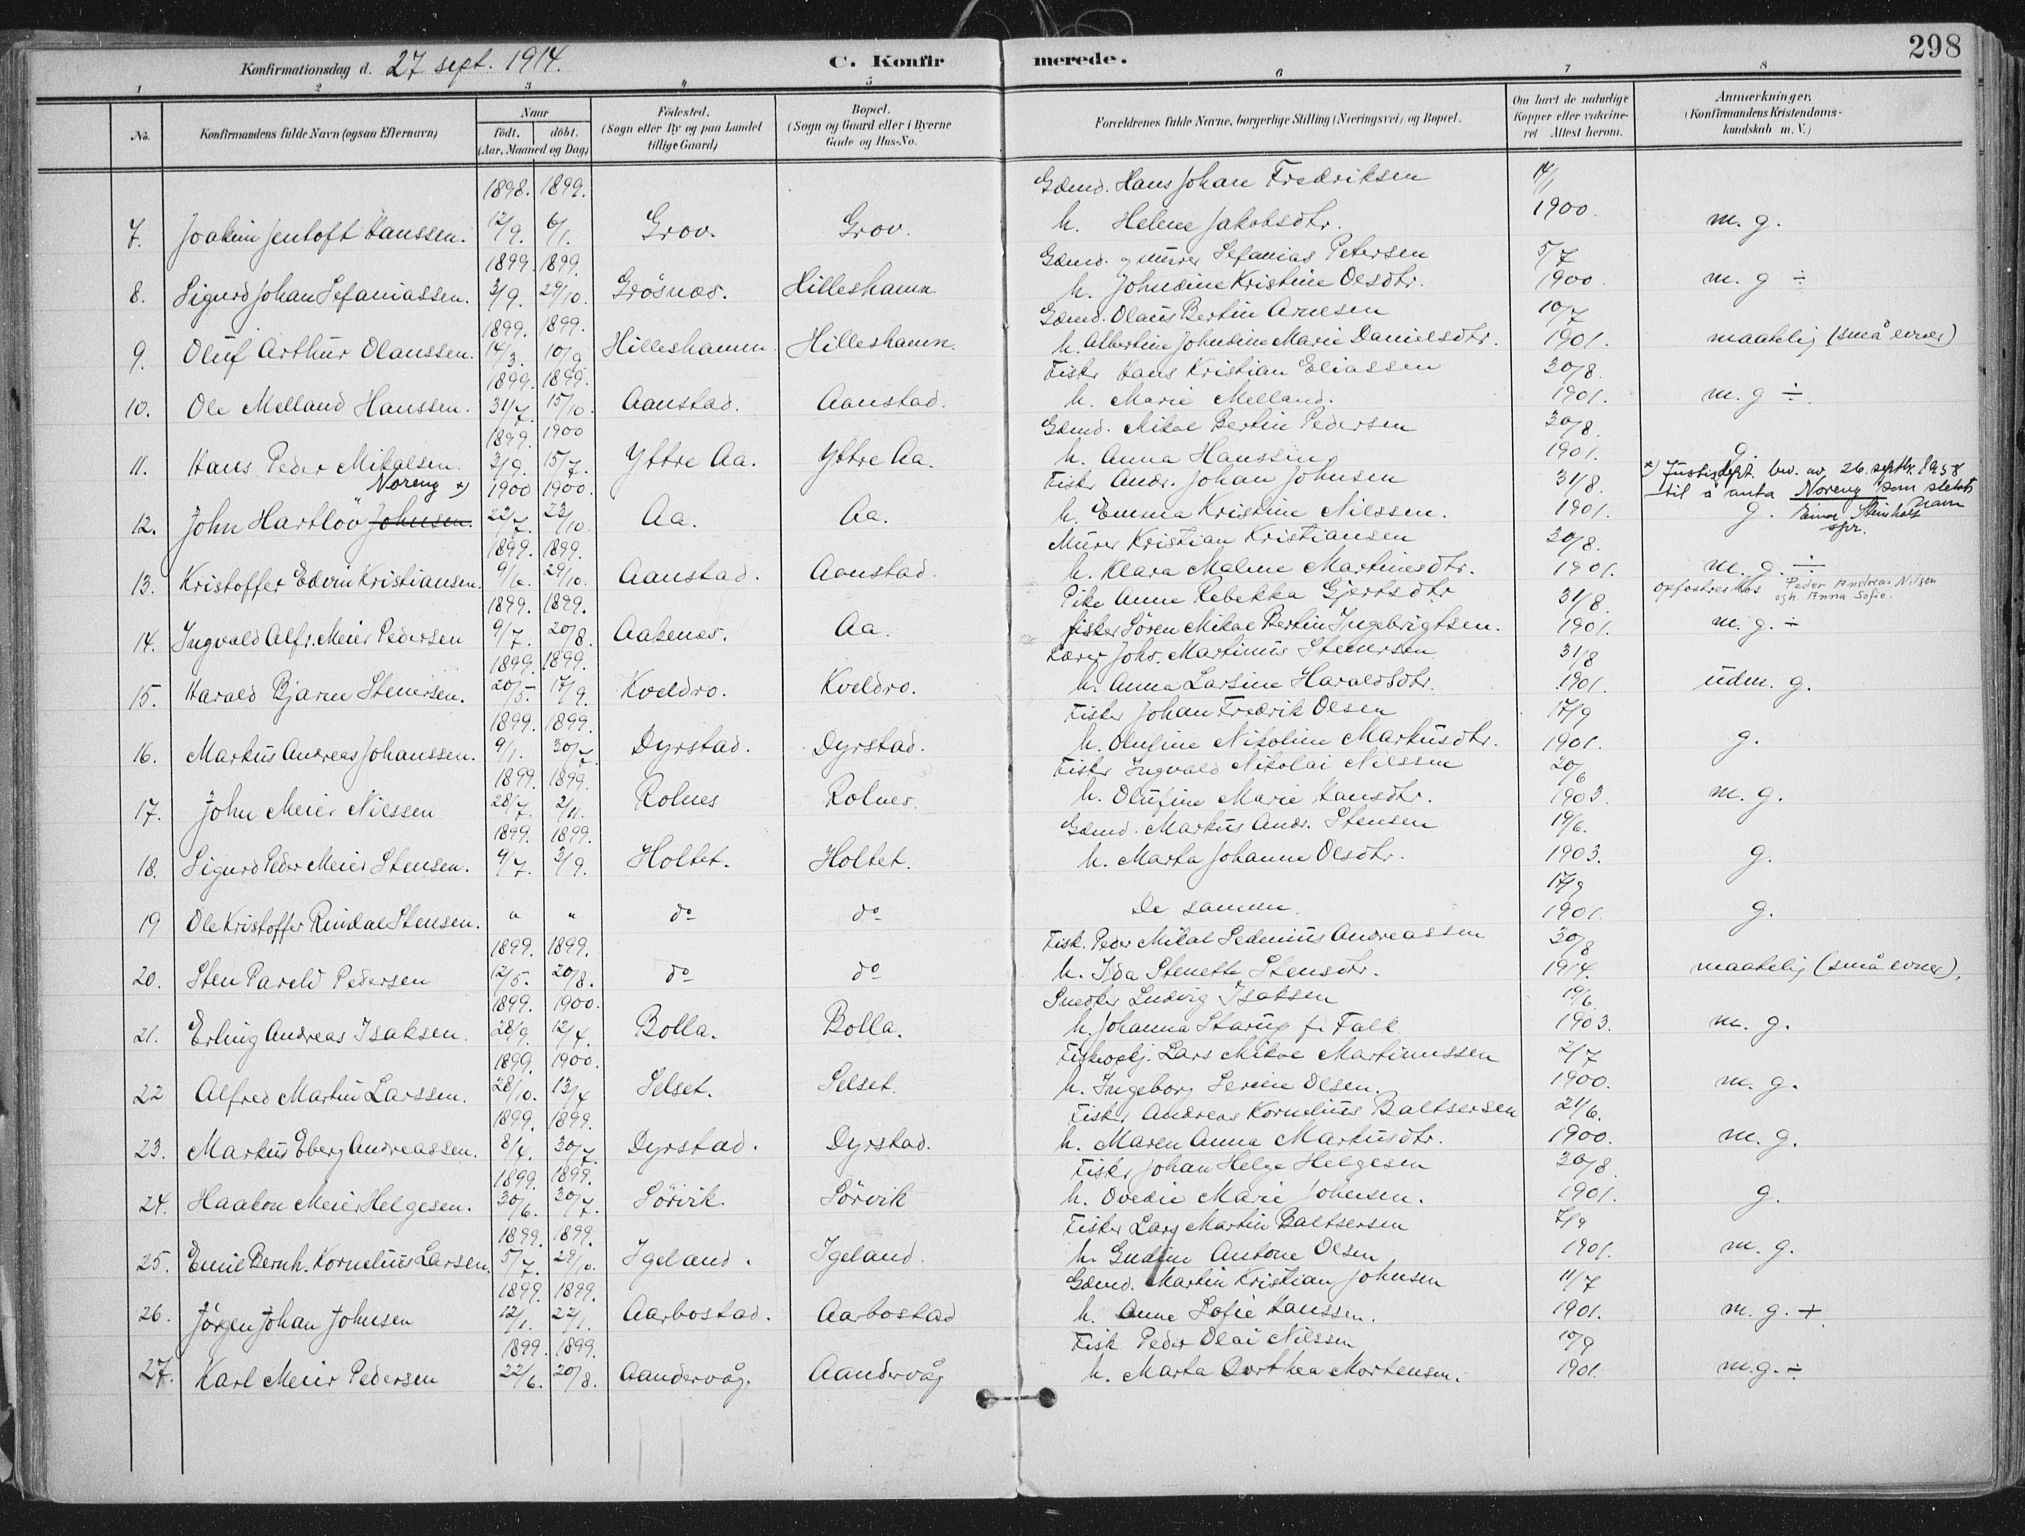 298
Konfirmationsdag d. 27 sept. 1914. C. Konfir merede.
1 2 3 4 5 6 7 8
No. Konfirmandens fulde Navn (ogsaa Efternavn) Naar födt. döbt. (Aar, Maaned og Dag) Födested. (Sogn eller By og paa Landet tillige Gaard) Bopæl. (Sogn og Gaard eller i Byerne Gade og Hus-No. Forældrenes fulde Navne, borgerlige Stilling (Næringsvei) og Bopæl. Om havt de naturlige Kopper eller vakcineret Attest herom. Anmærkninger. (Konfirmandens Kristendomskundskab m. V.)
1898. 1899. Gdmd. Hans Johan Fredriksen 14/1
7. Joakim Jentoft Hanssen. 12/9. 6/1. Grov. Grov. h. Helene Jakobsdtr. 1900. m. g.
1899. 1899. Gdmd. og murer Sefanias Petersen 5/7
8. Sigurd Johan Sefaniassen. 3/9. 29/10. Grösnes. Hilleshamn h. Johndine Kristine Olsdtr. 1900. m. g ÷
1899. 1899. Gdmd. Olaus Bertin Arnesen 10/7
9. Oluf Arthur Olaussen. 14/3. 10/9. Hilleshamn. Hilleshamn. h. Albertine Johndine Marie Danielsdtr. 1901. maatelig (små evner)
1899. 1899. Fisker Hans Kristian Eliassen 30/8.
10. Ole Melland Hanssen. 31/7. 15/10. Aanstad. Aanstad. h. Marie Melland. 1901. m. g ÷.
1899. 1900 Gdmd. Mikal Bertin Pedersen 30/8.
11. Hans Peder Mikalsen. 3/9. 15/7. Yttre Aa. Yttre Aa. h. Anna Hanssen 1901. g.
Noreng x) 1900 1900. Fisker Andr. Johan Johnsen 31/8. x) Justisdept. bev. av 26. septbr. 1958 til å anta Noreng som slektsnavn
12. John Hartlöv Johnsen. 22/7. 23/10. Aa. Aa. h. Emma Kristine Nilssen. 1901. g. Einar spr.
1899. 1899. Murer Kristian Kristiansen 30/8.
13. Kristoffer Edvin Kristiansen. 9/6. 29/10. Aanstad. Aanstad. h. Klara Malene Martinesdtr. 1901. m. g. ÷
1899. 1899. Pike Anne Rebekka Gjertsdtr 31/8. opfostres hos Peder Andreas Nilsen ogh. Anna Sofie.
14. Ingvald Alfr. Meier Pedersen 9/7. 20/8. Aakenes. Aa. fisker Sören Mikal Bertin Ingebrigtsen. 1901. m. g. ÷
1899. 1899. Lærer Johs. Martinus Stenersen 31/8
15. Harald Bjarne Stenersen. 20/5. 17/9. Kveldro. Kveldro. h. Anna Larsine Haraldsdtr. 1901. udm. g.
1899. 1899. Fisker Johan Fredrik Olsen 17/9
16. Markus Andreas Johanssen. 9/1. 30/7. Dyrstad. Dyrstad. h. Olufine Nikoline Markusdtr. 1901. g.
1899. 1899. Fisker Ingvald Nikolai Nilssen 20/6
17. John Meier Nilssen 28/7. 2/11. Rolnes Rolnes. h. Olufine Marie Hansdtr. 1903. m. g.
1899. 1899. Gdmd. Markus Andr. Stensen 19/6.
18. Sigurd Peder Meier Stensen. 9/7. 3/9. Holtet. Holtet. h. Marta Johanne Olsdtr. 1903. g.
17/9
19 Ole Kristoffer Rindal Stensen. " " do do De samme. 1901. g.
1899. 1899. Fisk. Peder Mikal Sedenius Andreassen 30/8
20. Sten Pareld Pedersen 12/5. 20/8. do do h. Ida Stenette Stensdtr. 1914. maatelig (små evner).
1899. 1900. Snedker Ludvig Isaksen 19/6
21. Erling Andreas Isaksen. 28/9. 12/4. Bolla. Bolla. h. Johanna Starup f. Falk 1903. m. g.
1899. 1900. Lars Mikal Martinussen 2/7
22 Alfred Martin Larssen. 28/10. 13/4 Selset. Selset. h. Ingeborg Serine Olsen. 1900. m. g.
1899. 1899. Fisker Andreas Kornelius Baltsersen 21/6.
23. Markus Eberg Andreassen. 8/4. 30/7. Dyrstad. Dyrstad. h. Maren Anna Markusdtr. 1900. m. g.
1899. 1899. Fisker Johan Helge Helgesen 30/8.
24. Haakon Meier Helgesen. 30/6. 30/7. Sörvik. Sörvik h. Ovedie Marie Johnsen. 1901. g.
1899. 1899. Fisker Lars Martin Baltsersen 7/9
25. Emil Bernh. Kornelius Larsen. 5/7. 29/10. Igeland. Igeland. h. Gudine Antone Olsen 1901. m. g.
1899. 1899. Gdmd. Martin Kristian Johnsen 11/7
26. Jörgen Johan Johnsen 12/1. 22/1. Aarbostad. Aarbostad h. Anne Sofie Hanssen. 1901. m. g. +
1899. 1899. Fisk Peder Olai Nilssen 10/9
27. Karl Meier Pedersen 22/6. 20/8. Aandervåg. Aandervåg h. Marta Dorthea Mortensen. 1901. m. g. ÷